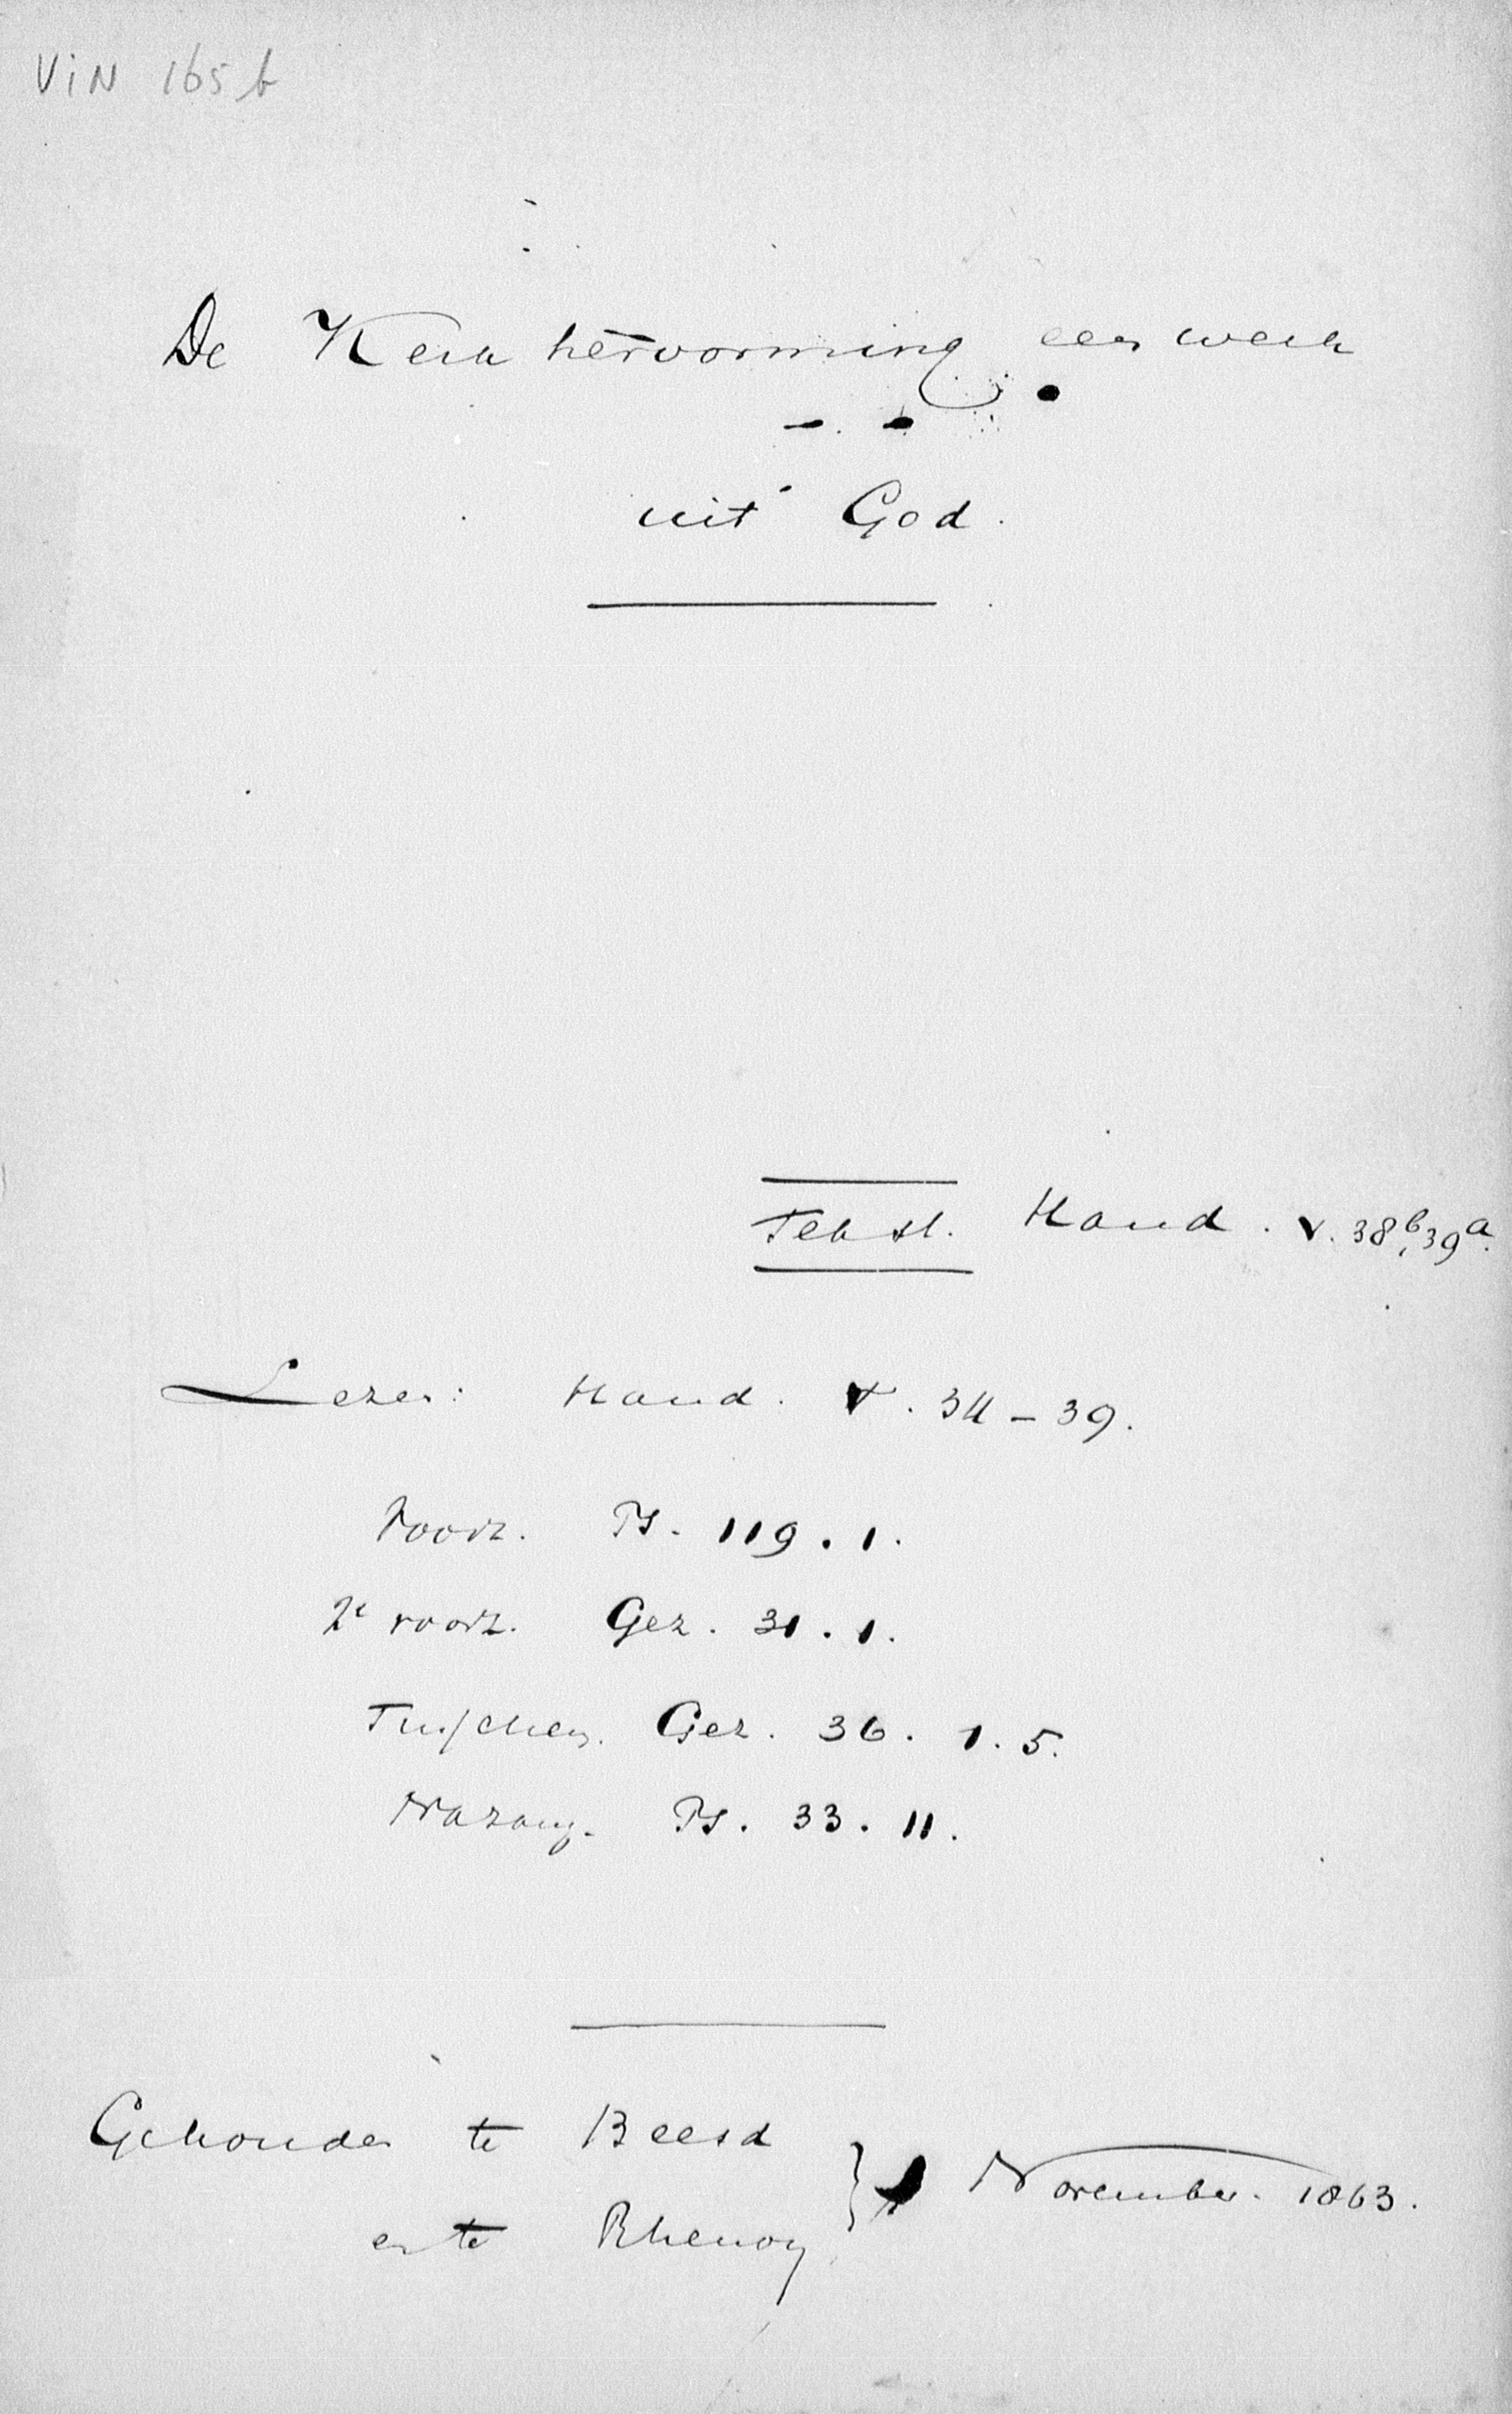 ViN 165 b
De Kerkhervorming een werk
uit God.
Tekst. Hand. V. 38b, 39a.
Lezen: Hand. V. 34 - 39.
Voorz. Ps. 119. 1.
2e voorz. Gez. 31. 1.
Tusschen. Gez. 36. 1. 5.
Nazang. Ps. 33. 11.
Gehouden te Beesd
en te Rhenoy } 1 November. 1863.